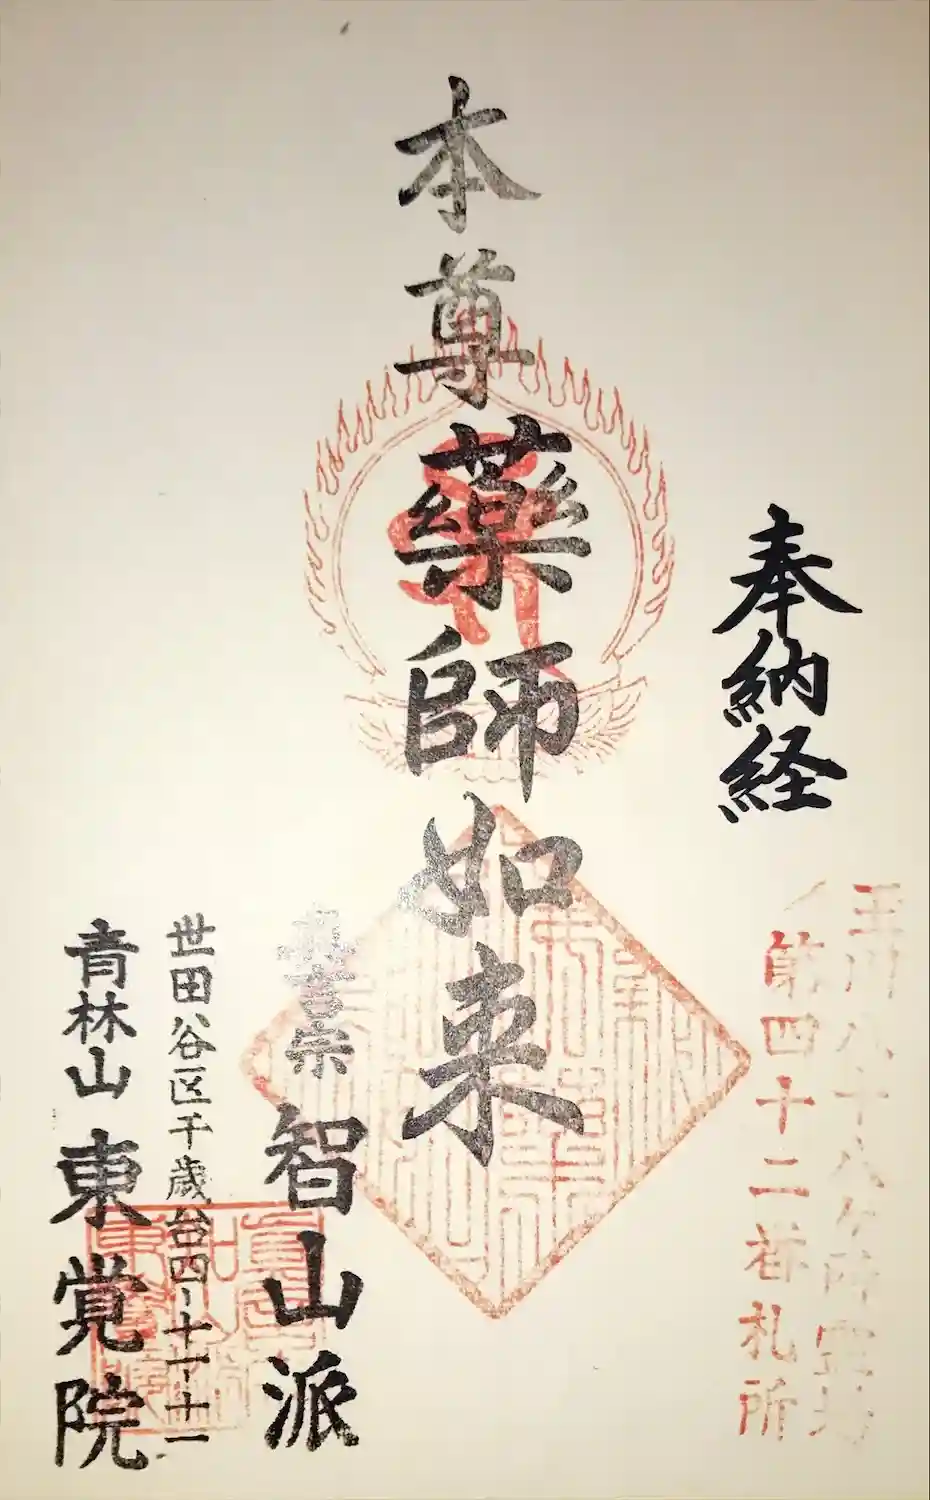 玉川八十八ヶ所霊場
第四十二番札所
奉納経
本尊薬師如来
真言宗智山派
世田谷区千歳台四ー十一ー十一
青林山東覚院